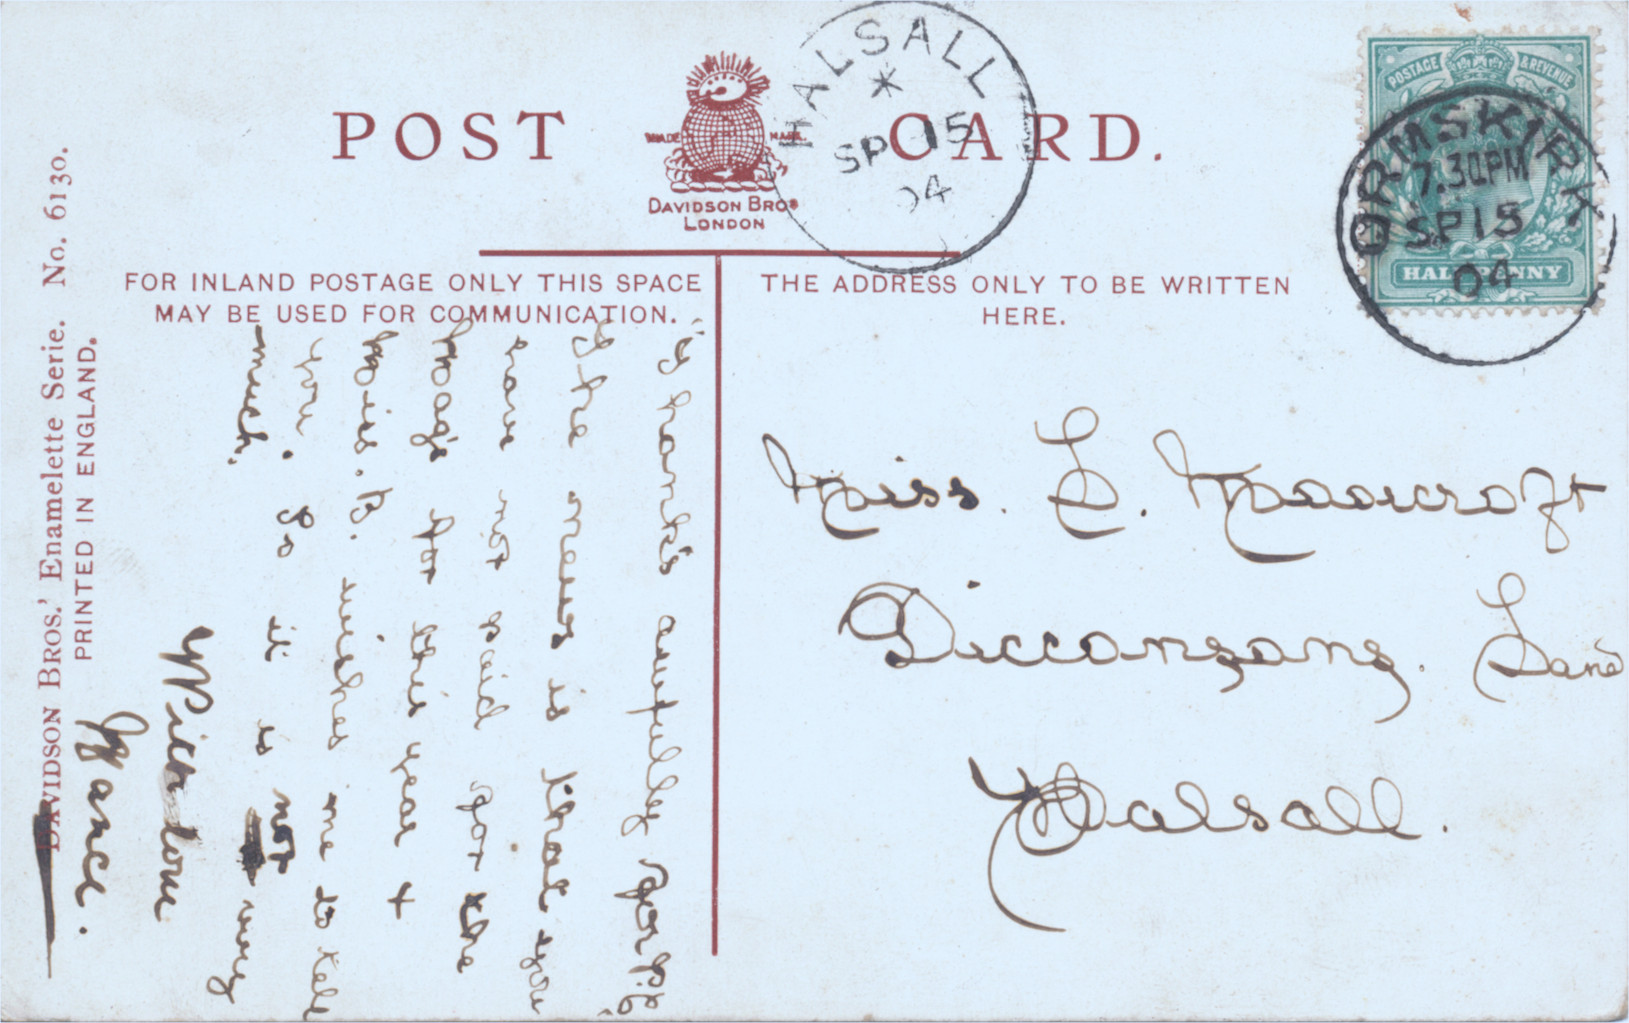 POST CARD.
TRADE MARK.
DAVIDSON BROS
LONDON
HALSALL
SP 15
04
POSTAGE & REVENUE
HALFPENNY
ORMSKIRK
7.30PM
SP 15
04
FOR INLAND POSTAGE ONLY THIS SPACE
MAY BE USED FOR COMMUNICATION.
THE ADDRESS ONLY TO BE WRITTEN
HERE.
DAVIDSON BROS.' Enamelette Serie. No. 6130.
PRINTED IN ENGLAND.
Thanks awfully for P.C
The news is that you
have not paid for the
for this year +
B. wishes me to tell
you. So it is not very
much.
With love
Miss. E.
Lane
Halsall.